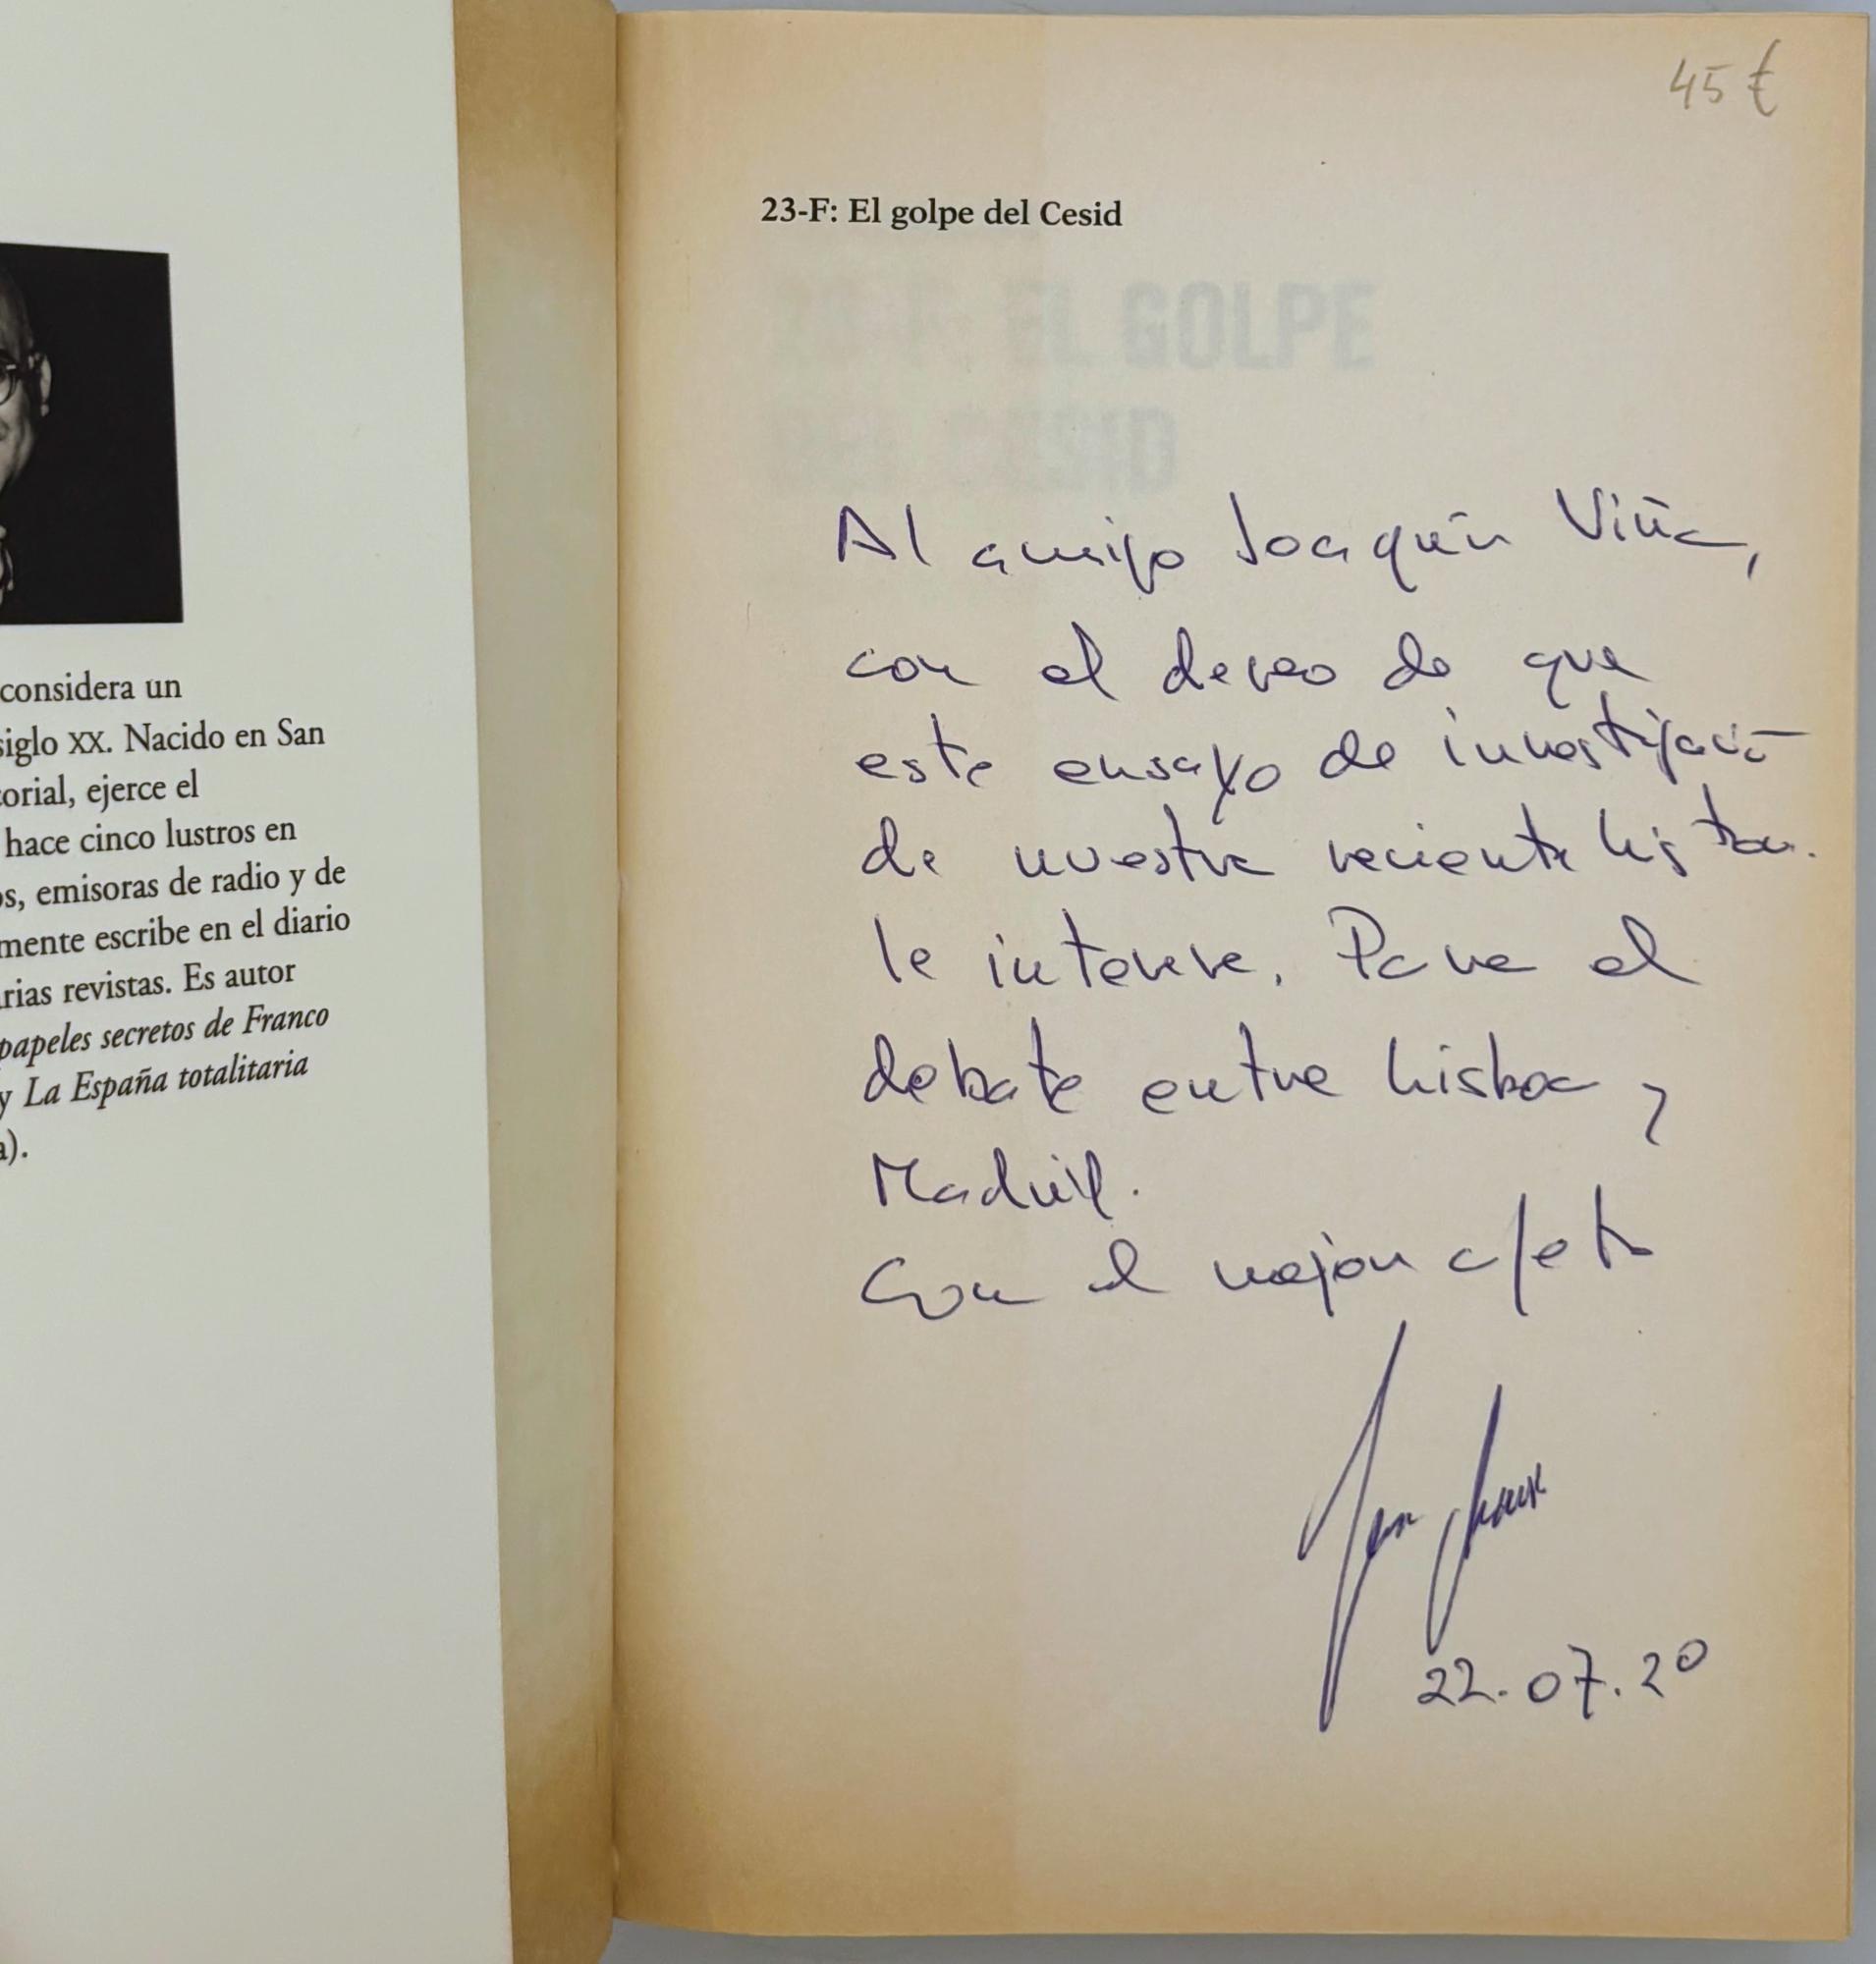 considera un
siglo XX. Nacido en San
orial, ejerce el
hace cinco lustros en
os, emisoras de radio y de
mente escribe en el diario
rias revistas. Es autor
papeles secretos de Franco
y La España totalitaria
a).
45 €
23-F: El golpe del Cesid
23-F: EL GOLPE
DEL CESID
Al amigo Joaquín Viña,
con el deseo de que
este ensayo de investigació
de nuestra reciente
le interese. Para el
debate entre Lisboa y
Madrid.
Con el mejor afecto
22.07.20